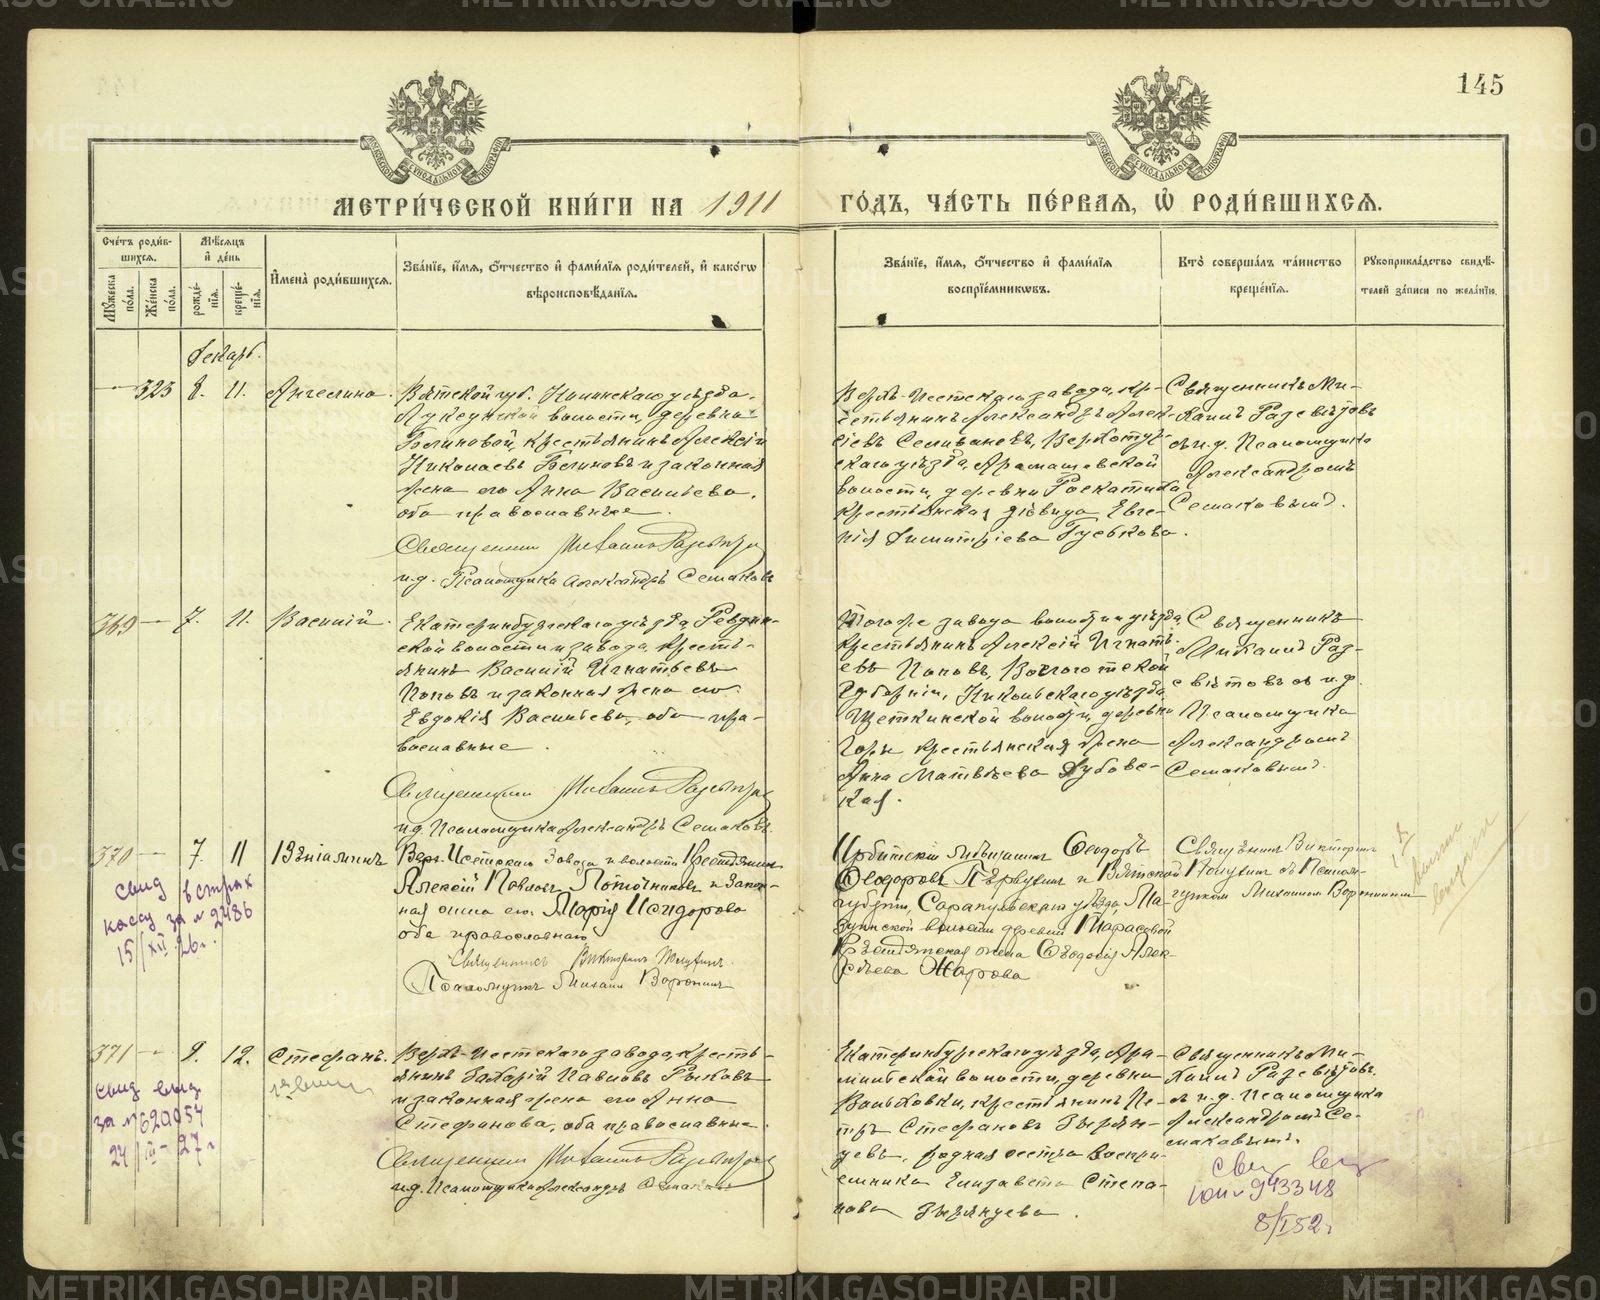 145
МЕТРИ́ЧЕСКОЙ КНИ́ГИ НА 1911 ГО́ДЪ, ЧА́СТЬ ПЕ́РВАЯ, Ѡ҆ РОДИ́ВШИХСЯ.
Сче́тъ роди́в-
шихся.
Мѣ́сяцъ
и҆ де́нь
И҆мена̀ роди́вшихся.
Зва́нїе, и҆́мя, ѻ҆́тчество и҆ фами́лїя роди́телей, и҆ како́гѡ
вѣроисповѣ́данїя.
Зва́нїе, и҆́мя, ѻ҆́тчество и҆ фами́лїя
воспрїе́мникѡвъ.
Кто̀ соверша́лъ та́инство
креще́нїя.
Рꙋкоприкла́дство свидѣ́-
телей за́писи по жела́нїю.
Мꙋ́жеска
по́ла.
Же́нска
по́ла.
рожде́-
нїя.
креще́-
нїя.
Декабр.
— 323 8. 11. Ангелина.
Вятской губ. Нолинскаго уѣзда,
волости, деревни
Бѣлиновой, крестьянинъ Алексѣй
Николаевъ Бѣлиновъ и законная
жена его Анна Васильева,
оба православные.
Священникъ Михаилъ Разсвѣтовъ
и.д. Псаломщика Александръ Семаковъ
Верхъ-Исетскаго завода, кр-
естьянинъ Александръ Алек-
сѣевъ Селивановъ, Верхотур-
скаго уѣзда, Арамашевской
волости, деревни Роскатиха
крестьянская дѣвица Евге-
нія Димитріева Губкова.
Священникъ Ми-
хаилъ Разсвѣтовъ
съ и.д. Псаломщика
Александромъ
Семаковымъ.
369 — 7. 11. Василій.
Екатеринбургскаго уѣзда, Ревдин-
ской волости и завода, кресть-
янинъ Василій Игнатьевъ
Поповъ и законная жена его
Евдокія Васильева, оба пра-
вославные.
Священникъ Михаилъ Разсвѣтовъ
и.д. Псаломщика Александръ Семаковъ.
Того же завода волости и уѣзда
крестьянинъ Алексѣй Игнать-
евъ Поповъ, Вологотской
Губерніи, Никольскаго уѣзда
Щеткинской волости, деревни
Горы крестьянская жена
Анна Матвѣева Дубовс-
кая.
Священникъ
Михаилъ Раз-
свѣтовъ съ и.д.
Псаломщика
Александромъ
Семаковымъ.
370 — 7. 11 Веніаминъ
Верх-Исетскаго Завода и волости Крестьянинъ
Алексій Павловъ Поточниковъ и Закон-
ная жена его Марія Исидорова
оба православнаго
Священникъ Викторъ
Псаломщикъ Михаилъ Воронинъ
свид в страх
кассу за № 2486
15/XII 26г.
Ирбитскій мѣщанинъ Ѳеодоръ
Ѳеодоровъ Первухинъ и Вятской
губерніи, Сарапульскаго уѣзда Ма-
зунинской волости деревни Тарасовой
Крестьянская жена Ѳеодосія Алек-
сѣева Жарова
Священникъ Викторъ
съ Псалом-
щикомъ Михаиломъ Воронинымъ
371 — 9. 12. Стефанъ.
Верхъ-Исетскаго завода, кресть-
янинъ Захарій Павловъ Рыковъ
и законная жена его Анна
Стефанова, оба православные.
Священникъ Михаилъ Разсвѣтовъ
и.д. Псаломщика Александръ Семаковъ
свид выд
за № 620057
24/III – 27 г
Екатеринбургскаго уѣзда, Ара-
мильской волости, деревни
крестьянинъ Пе-
тръ Стефановъ Зырян-
цевъ, родная сестра воспри-
емника Елизавета Степа-
нова Зырянцева.
Священникъ Ми-
хаилъ Разсвѣтовъ
съ и.д. Псаломщика
Александромъ Се-
маковымъ.
свид выд
ЮЛ № 943348
8/I 52 г
METRIKI.GASO-URAL.RU